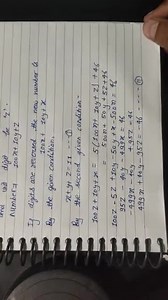 and unit digit be z.
Number is 100x+10y+z
If digits are reversed the new number is
100z+10y+x
By the given condition.
By the second given condition-
100z+10y+x = 5(100x+10y+z)+46
= 500x+50y+5z+46
100z-5z+10y-50y+x-500x=46
95z-40y-499x=46